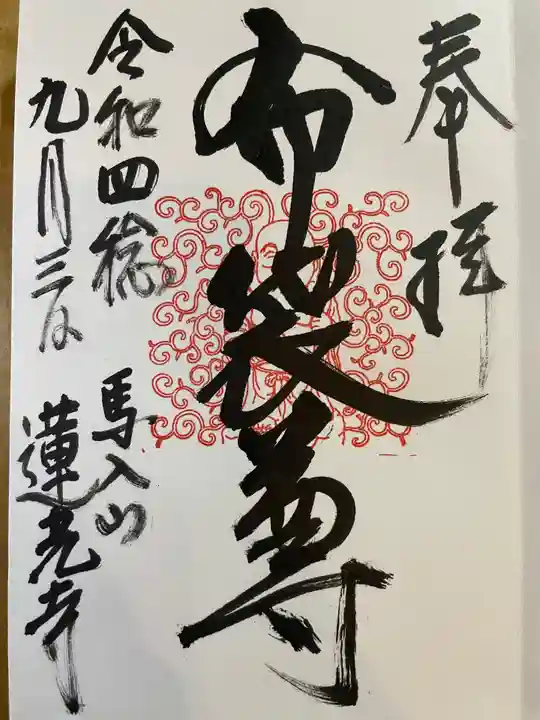 奉拝
布袋尊
馬入山
蓮光寺
令和四稔
九月三日